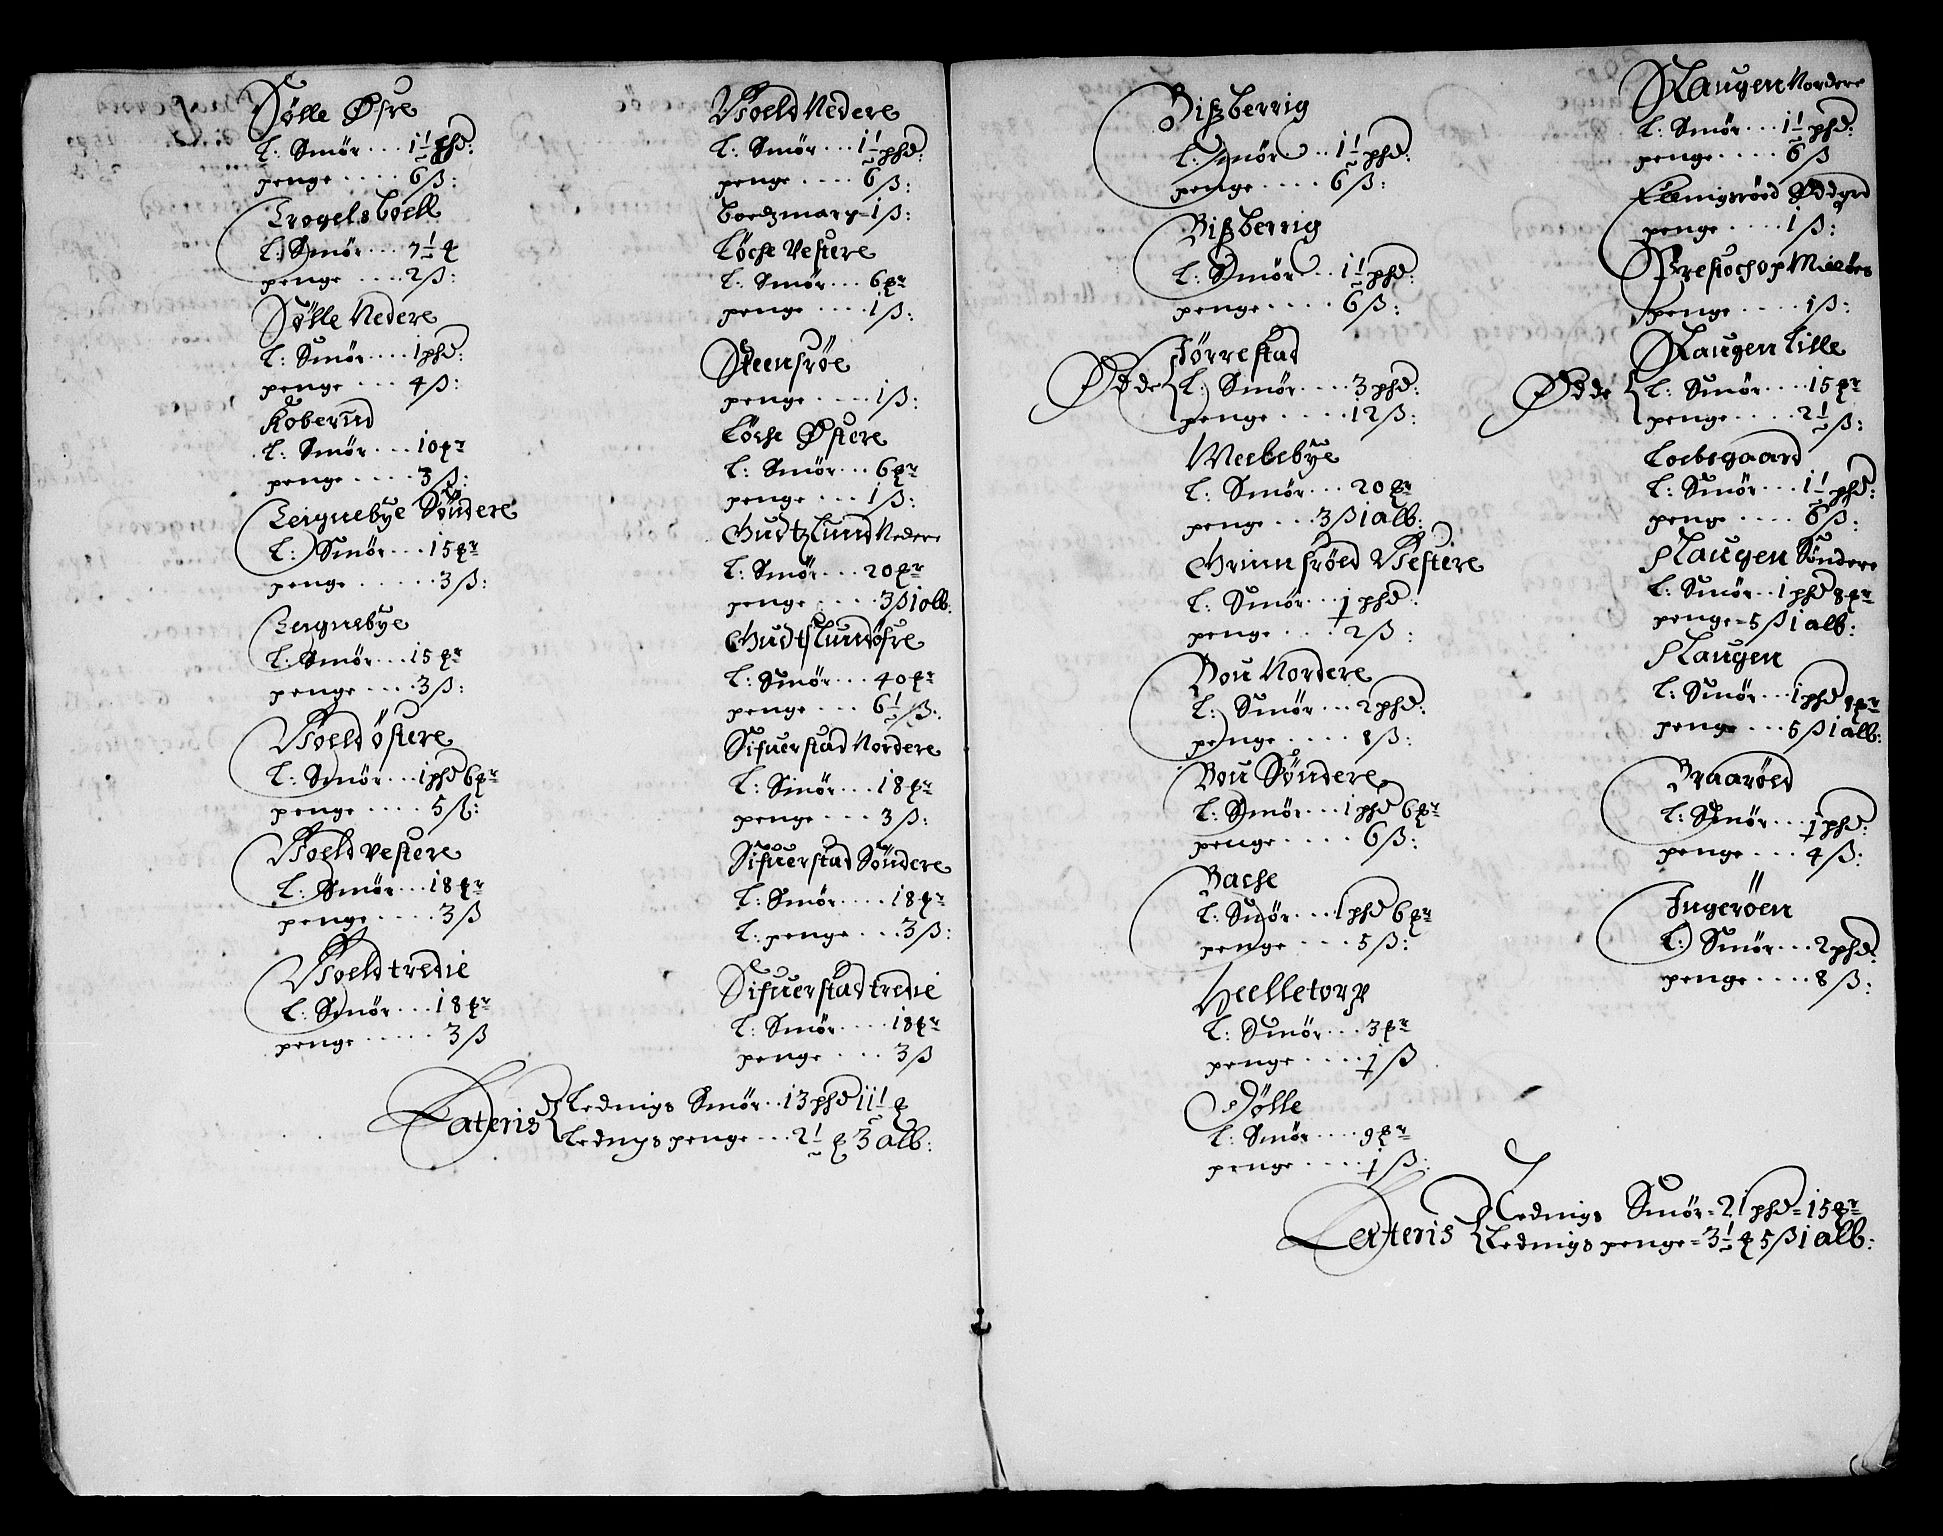 Sølle Øfre
L: Smør .... 1½ phd:
penge ..... 6 ß:
Trogelsböell
L: Smør .... 7½ ꝶ
penge ..... 2 ß:
Sølle Nedere
L: Smør .... 1 phd:
penge .... 4 ß:
Koberud
L: Smør .... 10 ꝶr
penge ..... 3 ß:
Leignebye Söndere
L: Smør .... 15 ꝶr
penge ...... 3 ß:
Leignebye
L: Smør .... 15 ꝶr
penge .... 3 ß:
Woeld östere
L: Smör .... 1 phd 6 ꝶr
penge ..... 5 ß:
Woeld vestere
L: Smør .... 18 ꝶr
penge ..... 3 ß
Woeld tredie
L: Smör .... 18 ꝶr
penge ..... 3 ß
Woeld Nedere
L: Smör ... 1½ phd:
penge ..... 6 ß:
boedzmarp - 1 ß:
Löche Vestere
L: Smör ... 6 ꝶr
penge ..... 1 ß:
Steensröe
penge ..... 1 ß:
Löche Østere
L: Smör ... 6 ꝶr
penge .... 1 ß:
Gudtzlund Nedere
L: Smör ... 20 ꝶr
penge ..... 3 ß 1 alb:
Gudtslund öfre
L: Smör ... 40 ꝶr
penge .... 6½ ß:
Sifuerstad Nordere
L: Smör .... 18 ꝶr
penge .... 3 ß:
Sifuerstad Söndere
L: Smör ..... 18 ꝶr
L: penge .... 3 ß:
Sifuerstad tredie
L: Smör ..... 18 ꝶr
penge .... 3 ß
Lateris { Lednigs Smör .. 13 phd 11½ ꝶ
Lednigs penge ... 2½ ꝶ 3 alb:
Bißberrig
L: Smör .. 1½ phd:
penge ..... 6 ß:
Bißberrig
L: Smör ... 1½ phd:
penge ..... 6 ß:
Jörrestad
Øde { L: Smör .... 3 phd:
penge ..... 12 ß:
Meelebye
L: Smör ... 20 ꝶr
penge ... 3 ß 1 alb:
Grimsröed Vestere
L: Smör ... 1 phd:
penge .... 2 ß:
Bou Nordere
L: Smör ... 2 phd:
penge ..... 8 ß:
Bou Söndere
L: Smör ... 1 phd 6 ꝶr
penge ..... 6 ß:
Bache
L: Smör ... 1 phd 6 ꝶr
penge .... 5 ß:
Heelletorp
L: Smör ... 3 ꝶr
penge .... 1 ß
Sölle
L: Smör .... 9 ꝶr
penge .... 1 ß:
Slaugen Nordere
L: Smör ... 1½ phd:
penge ..... 6 ß
Øddgrd
penge .... 1 ß:
penge ..... 1 ß:
Slaugen Lille
Øde { L: Smör .... 15 ꝶr
penge ..... 2½ ß:
Loebsgaard
L: Smör ... 1½ phd:
penge ..... 6 ß:
Slaugen Söndere
L: Smör .. 1 phd 8 ꝶr
penge = 5 ß 1 alb:
Slaugen
L: Smör ... 1 phd 8 ꝶr
penge ... 5 ß 1 alb:
Braaröed
L: Smör ... 1 phd:
penge .... 4 ß:
Ingeröen
L: Smör ... 2 phd:
penge .... 8 ß:
Lateris { Lednigs Smör = 21 phd = 15 ꝶr
Lednigs penge = 3½ ꝶ 5 ß 1 alb: